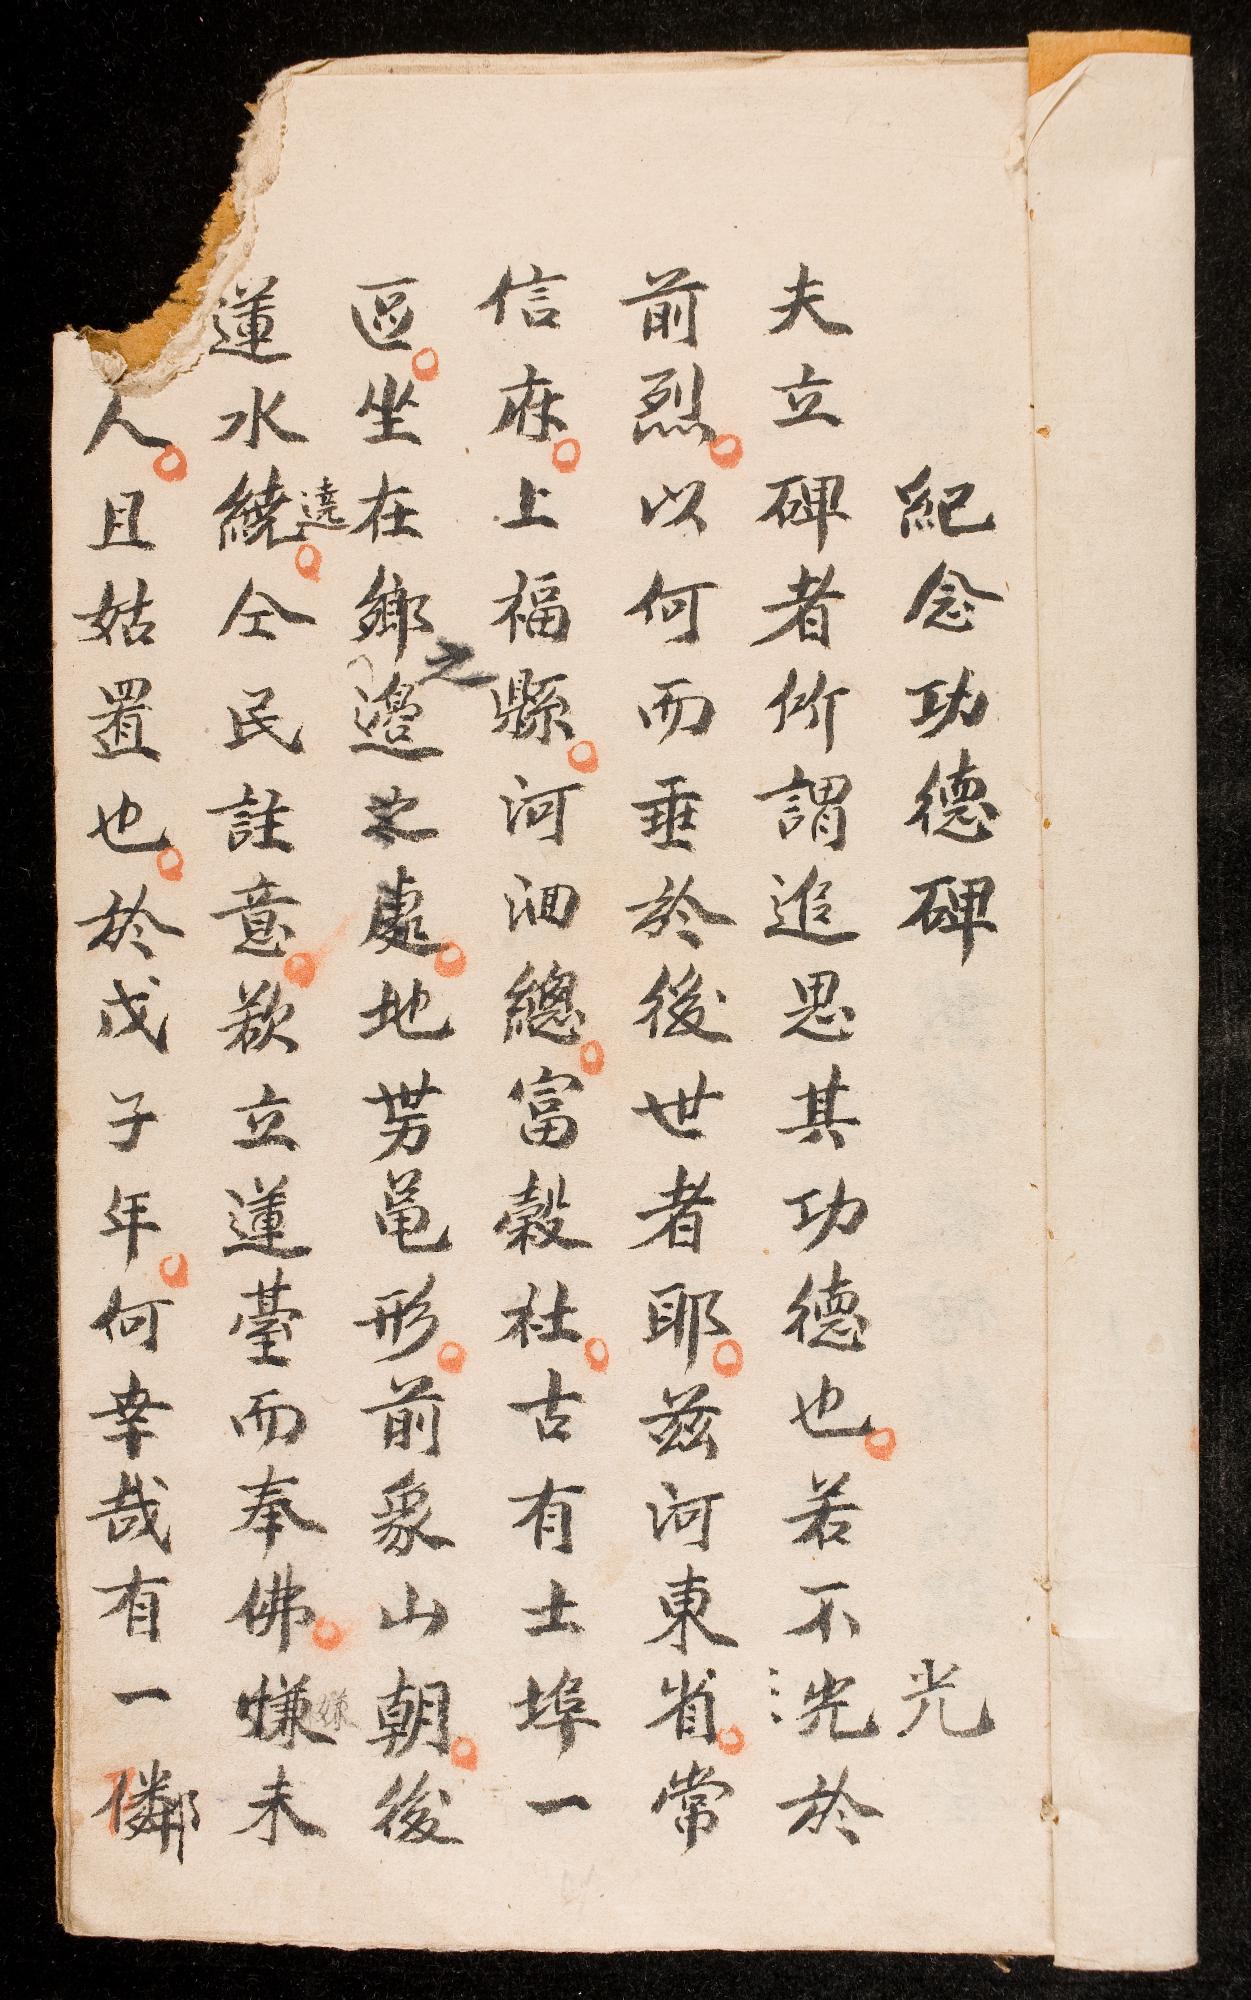 紀念功德碑 光
夫立碑者所謂追思其功德也若不光於
前烈以何而垂於後世者耶茲河東省常
信府上福縣河洄總富穀社古有土埠一
區坐在鄉邊之處地勢黽形前象山朝後
之
蓮水繞仝民註意欲立蓮臺而奉佛嫌未
遶
嫌
人且姑置也於戊子年何幸哉有一鄰